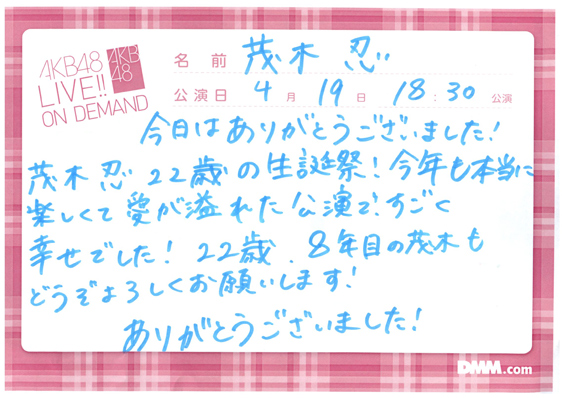 AKB48
LIVE!!
ON DEMAND
AKB
48
名前 茂木 忍
公演日 4月19日 18:30公演
今日はありがとうございました!
茂木 忍 22歳の生誕祭!今年も本当に
楽しくて愛が溢れた公演で、すごく
幸せでした!22歳、8年目の茂木も
どうぞよろしくお願いします!
ありがとうございました!
DMM.com